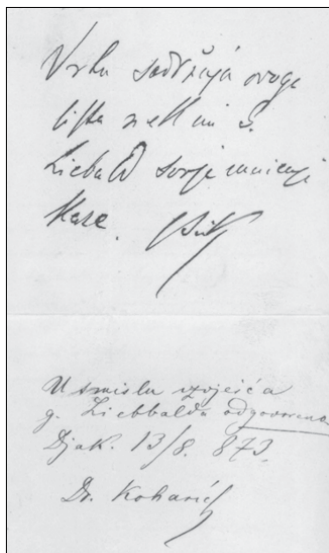 Vrhu sadržaja ovoga
lista nek mi g.
Liebald svoje mnienje
kaže.
U smislu izvješća
g. Liebbalda odgovoreno
Djak. 13/8. 873.
Dr. Koharić